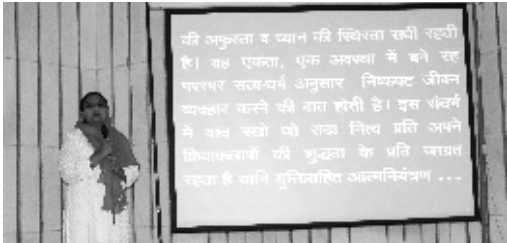 की अफुरता व ध्यान की स्थिरता सधी रहती
है। यह एकता, एक अवस्था में बने रह
परस्पर सत्य-धर्म अनुसार निष्कपट जीवन
व्यवहार करने की बात होती है। इस संदर्भ
में याद रखो जो सदा नित्य प्रति अपने
क्रियाकलापों की शुद्धता के प्रति जाग्रत
रहता है यानि युक्तिसहित आत्मनियंत्रण ...